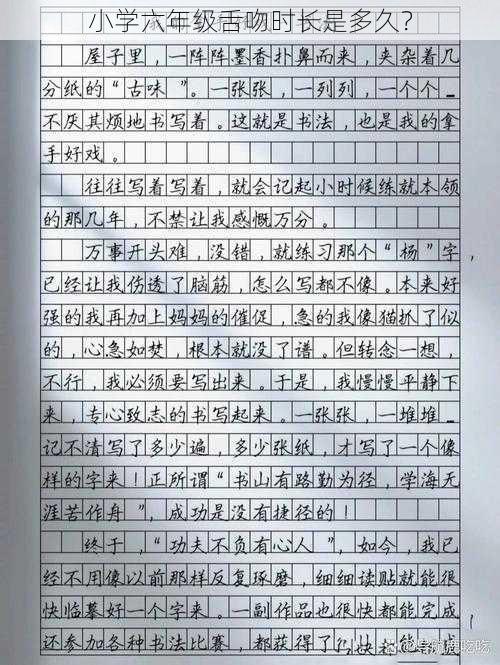 小学六年级舌吻时长是多久？
屋子里，一阵阵墨香扑鼻而来，夹杂着几
分纸的“古味”。一张张，一列列，一个个
不厌其烦地书写着。这就是书法，也是我的拿
手好戏。
往往写着写着，就会记起小时候练就本领
的那几年，不禁让我感慨万分。
万事开头难，没错，就练习那个“杨”字，
已经让我伤透了脑筋，怎么写都不像。本来好
强的我再加上妈妈的催促，急的我像猫抓了似
的，心急如焚，根本就没了谱。但转念一想，
不行，我必须要写出来。于是，我慢慢平静下
来，专心致志的书写起来。一张张，一堆堆
记不清写了多少遍，多少张纸，才写了一个像
样的字来！正所谓“书山有路勤为径，学海无
涯苦作舟”，成功是没有捷径的！
终于，“功夫不负有心人”，如今，我已
经不用像以前那样反复琢磨，细细读贴就能很
快临摹好一个字来。一副作品也很快都能完成，
还参加各种书法比赛，都获得了